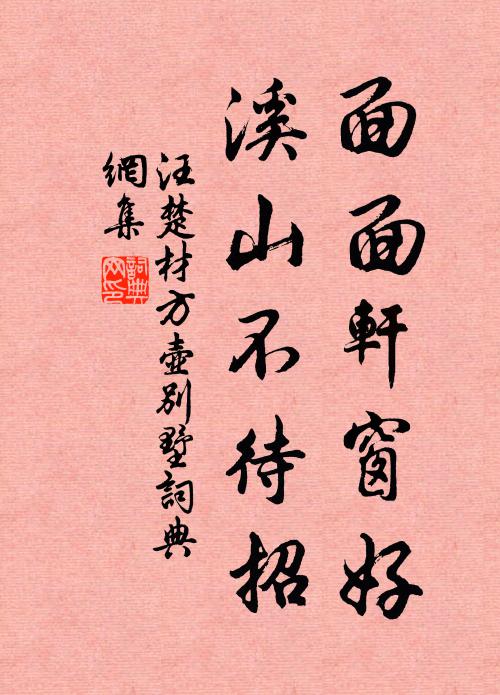 面面軒窗好
溪山不待招
汪楚材方壺別墅詞典
網集
詞典網印